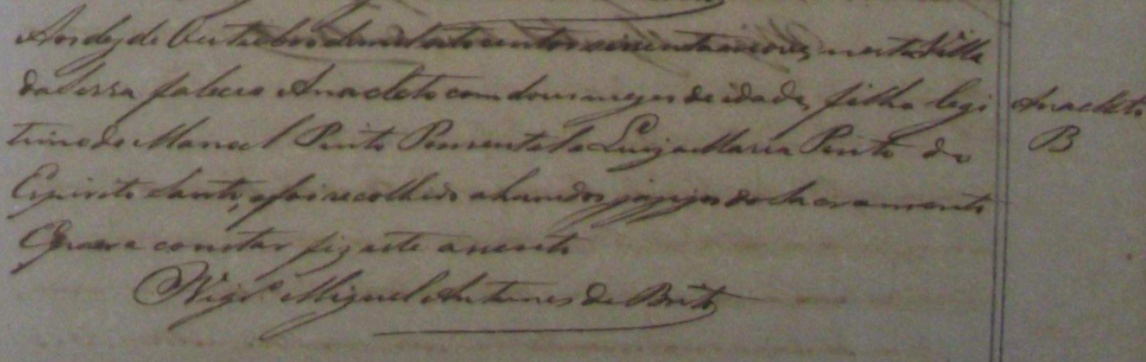 Aos dez de Outubro de mil oito centos sessenta e nove, nesta Villa
da Serra faleceo Anacleto com dous mezes de idade, filho legi
timo de Manoel Pinto Pimentel e Luiza Maria Pinto do
Espirito Santo, e foi recolhido a hum dos jazigos do Sacramento
E para constar fiz este assento
Vigr.º Miguel Antunes de Brito
Anacleto
B